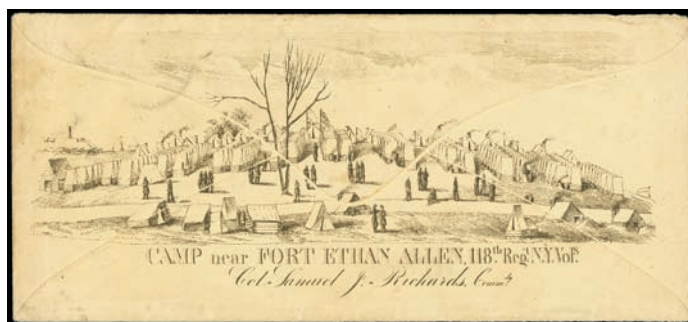 CAMP near FORT ETHAN ALLEN, 118th Regt. N.Y. Vols.
Col. Samuel J. Richards, Commdg.